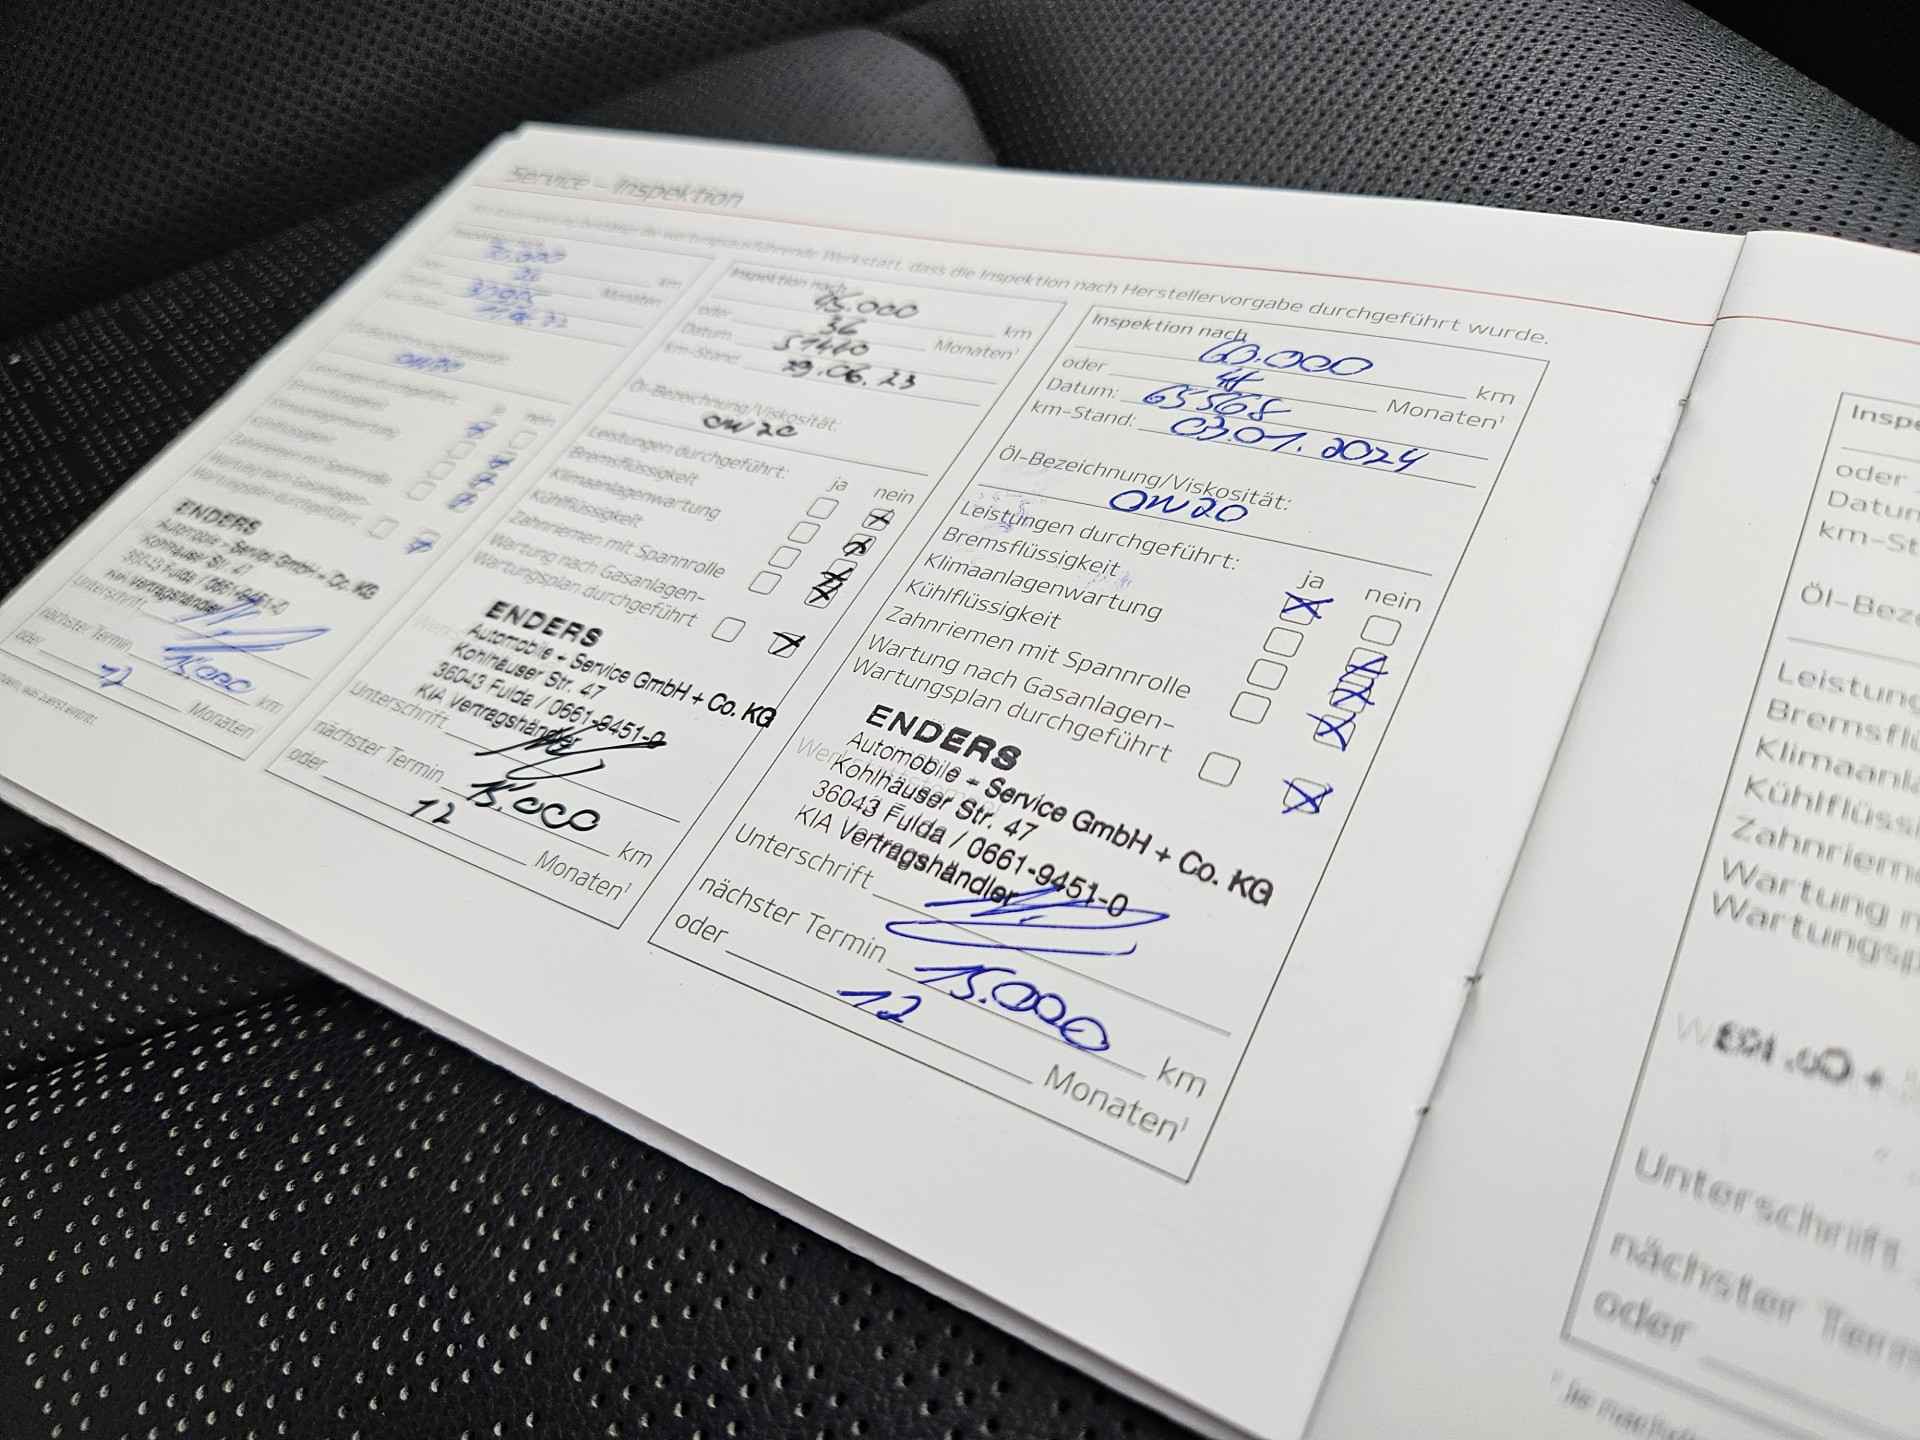 Service – Inspektion
Werkstatt, dass die Inspektion nach Herstellervorgabe durchgeführt wurde.
km
oder
Monaten
nein
Klimaanlagenwartung
Zahnriemen mit Spannrolle
Wartung nach Gasanlagen-
Wartungsplan durchgeführt
ENDERS
Automobile + Service GmbH + Co. KG
Kohlhäuser Str. 47
36043 Fulda / 0661-9451-0
KIA Vertragshändler
Unterschrift
nächster Termin 15.000 km
oder 12 Monaten
Inspektion nach
45.000 km
oder 36 Monaten¹
Datum: 51440
km-Stand: 29.06.23
Öl-Bezeichnung/Viskosität:
0W20
Leistungen durchgeführt: ja nein
Bremsflüssigkeit
Klimaanlagenwartung
Kühlflüssigkeit
Zahnriemen mit Spannrolle
Wartung nach Gasanlagen-
Wartungsplan durchgeführt
ENDERS
Automobile + Service GmbH + Co. KG
Kohlhäuser Str. 47
36043 Fulda / 0661-9451-0
KIA Vertragshändler
Unterschrift
nächster Termin 15.000 km
oder 12 Monaten¹
Inspektion nach
60.000 km
oder Monaten¹
Datum: 65568
km-Stand: 03.01.2024
Öl-Bezeichnung/Viskosität:
0W20
Leistungen durchgeführt: ja nein
Bremsflüssigkeit
Klimaanlagenwartung
Kühlflüssigkeit
Zahnriemen mit Spannrolle
Wartung nach Gasanlagen-
Wartungsplan durchgeführt
ENDERS
Automobile + Service GmbH + Co. KG
Kohlhäuser Str. 47
36043 Fulda / 0661-9451-0
KIA Vertragshändler
Unterschrift
nächster Termin 15.000 km
oder 12 Monaten¹
Inspe
oder
Datum
km-St
Öl-Beze
Leistung
Bremsflü
Klimaanla
Kühlflüssi
Zahnrieme
Wartung n
Wartungsp
Unterschrift
nächster Term
oder